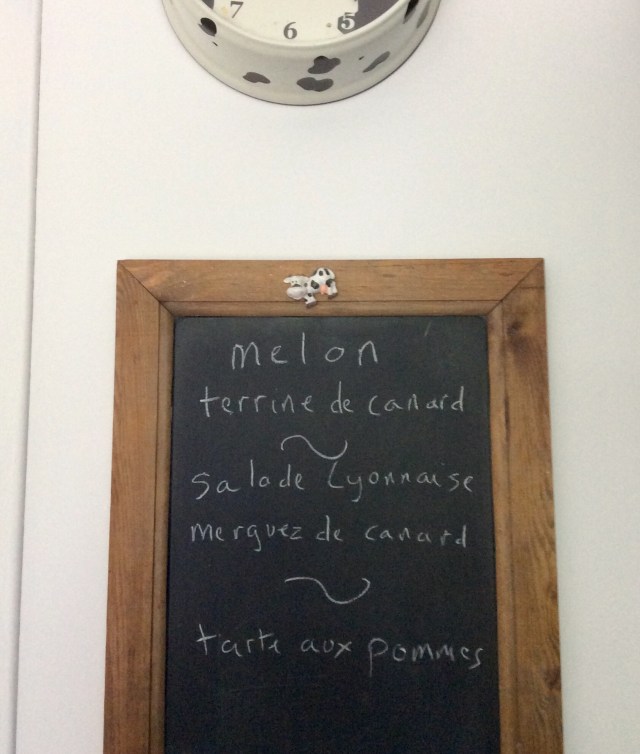 7 6 5
melon
terrine de canard
~
salade Lyonnaise
merguez de canard
~
tarte aux pommes